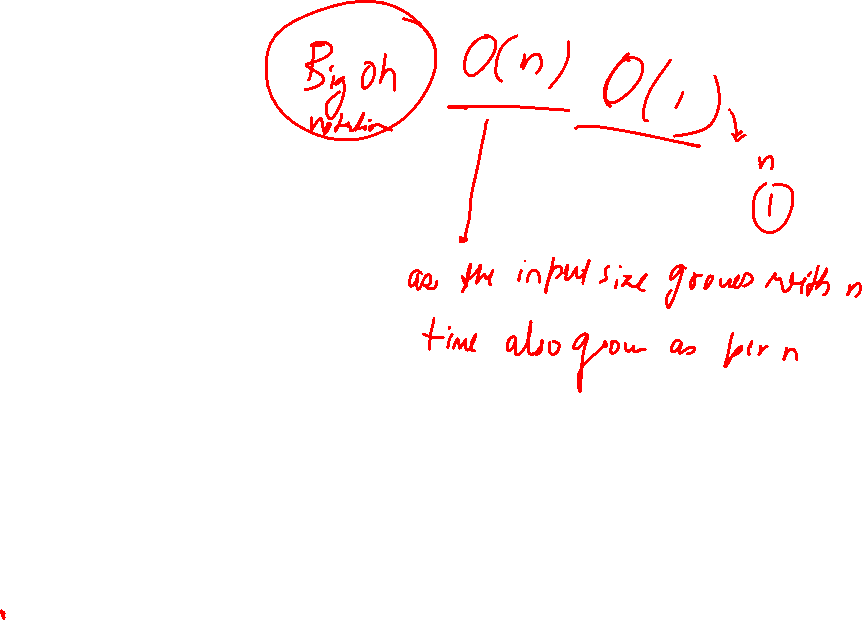 Big Oh
notation
O(n)
O(1)
n
1
as the input size groues with n
time also grow as per n